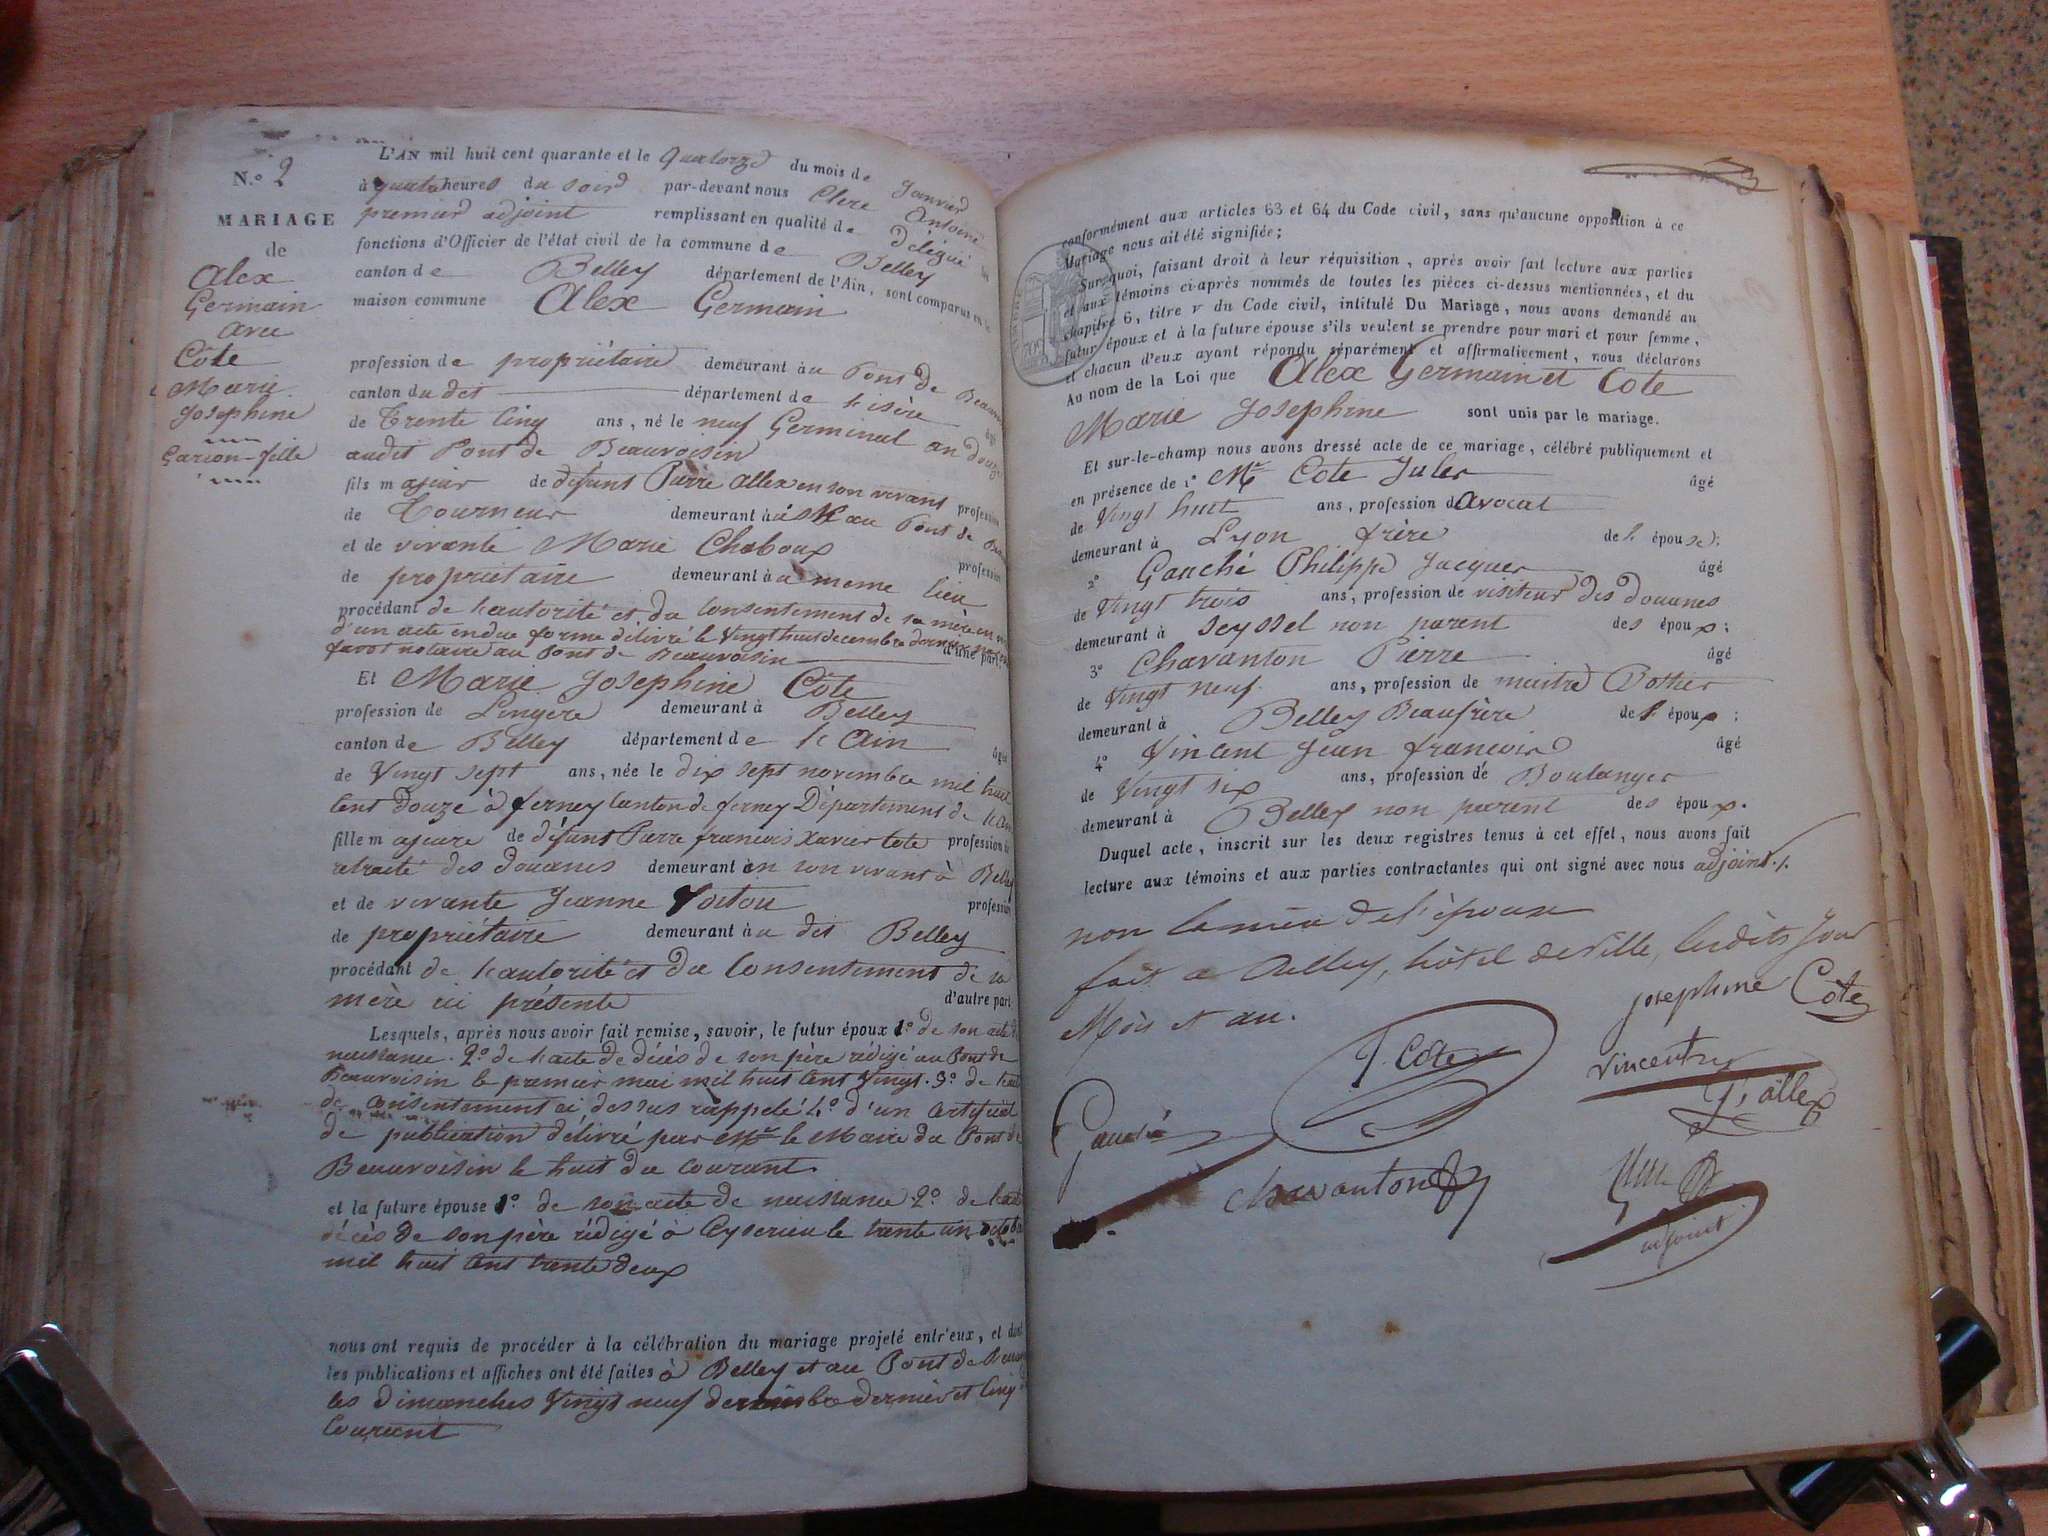 N.º 2
MARIAGE
de
Alex
Germain
avec
Côte
Marie
Josephine
Garcon-fille
L'AN mil huit cent quarante et le quatorze du mois de Janvier
à quatre heures du soir par-devant nous Clerc Antoine
premier adjoint remplissant en qualité de Délégué les
fonctions d'Officier de l'état civil de la commune de Belley
canton de Belley département de l'Ain, sont comparus en la
maison commune Alex Germain
profession de propriétaire demeurant au Pont de Beauvoisin
canton du dit département de l'isère âgé
de Trente Cinq ans, né le neuf Germinal an douze
audit Pont de Beauvoisin
fils majeur de défunt Pierre Allex en son vivant profession
de Tourneur demeurant au Pont de Beau
et de vivante Marie Chaboux profession
de propriétaire demeurant au meme lieu
procédant de l'autorité et du Consentement de sa mère en
d'un acte en due forme délivré le Vingt huit decembre dernier
favot notaire au Pont de Beauvoisin d'une part;
Et Marie Josephine Côte
profession de Lingere demeurant à Belley
canton de Belley département de l'Ain âgée
de Vingt sept ans, née le dix sept novembre mil huit
Cent Douze à ferney Canton de ferney Département de l'Ain
fille majeure de défunt Pierre francois Xavier Cote profession de
retraité des douanes demeurant en son vivant à Belley
et de vivante Jeanne profession
de propriétaire demeurant au dit Belley
procédant de l'autorité et du Consentement de sa
mère ici présente d'autre part
Lesquels, après nous avoir fait remise, savoir, le futur époux 1º de son acte de
naissance. 2º de l'acte de décès de son père rédigé au Pont de
Beauvoisin le premier mai mil huit Cent Vingt. 3º de l'acte
de consentement ci dessus rappelé 4º d'un Certificat
de publication délivré par Mr le Maire du Pont de
Beauvoisin le huit du courant.
et la future épouse 1º de son acte de naissance 2º de l'acte
décès de son père rédigé à Ceyserieu le trente un octobre
mil huit Cent trente deux
nous ont requis de procéder à la célébration du mariage projeté entr'eux, et dont
les publications et affiches ont été faites à Belley et au Pont de Beauv
les Dimanches Vingt neuf decembre dernier et Cinq
Courant
conformément aux articles 63 et 64 du Code civil, sans qu'aucune opposition à ce
Mariage nous ait été signifiée;
Sur quoi, faisant droit à leur réquisition, après avoir fait lecture aux parties
et aux témoins ci-après nommés de toutes les pièces ci-dessus mentionnées, et du
chapitre 6, titre v du Code civil, intitulé Du Mariage, nous avons demandé au
futur époux et à la future épouse s'ils veulent se prendre pour mari et pour femme,
et chacun d'eux ayant répondu séparément et affirmativement, nous déclarons
Au nom de la Loi que Alex Germain et Cote
Marie Josephine sont unis par le mariage.
Et sur-le-champ nous avons dressé acte de ce mariage, célébré publiquement et
en présence de 1º Mr Cote Jules âgé
de Vingt huit ans, profession d'avocat
demeurant à Lyon frère de l'épouse;
2º Gauché Philippe Jacques âgé
de Vingt trois ans, profession de visiteur des douanes
demeurant à Seyssel non parent des époux;
3º Chavanton Pierre âgé
de Vingt neuf ans, profession de maitre Potier
demeurant à Belley Beaufrère de l'époux;
4º Vincent Jean francois âgé
de Vingt six ans, profession de Boulanger
demeurant à Belley non parent des époux.
Duquel acte, inscrit sur les deux registres tenus à cet effet, nous avons fait
lecture aux témoins et aux parties contractantes qui ont signé avec nous adjoint./.
non la mère de l'époux
fait à Belley, hôtel de Ville, lesdits Jour
Mois et an.
Josephine Côte
J. Côte
Vincent
G. allex
Gauché
chavanton
adjoint